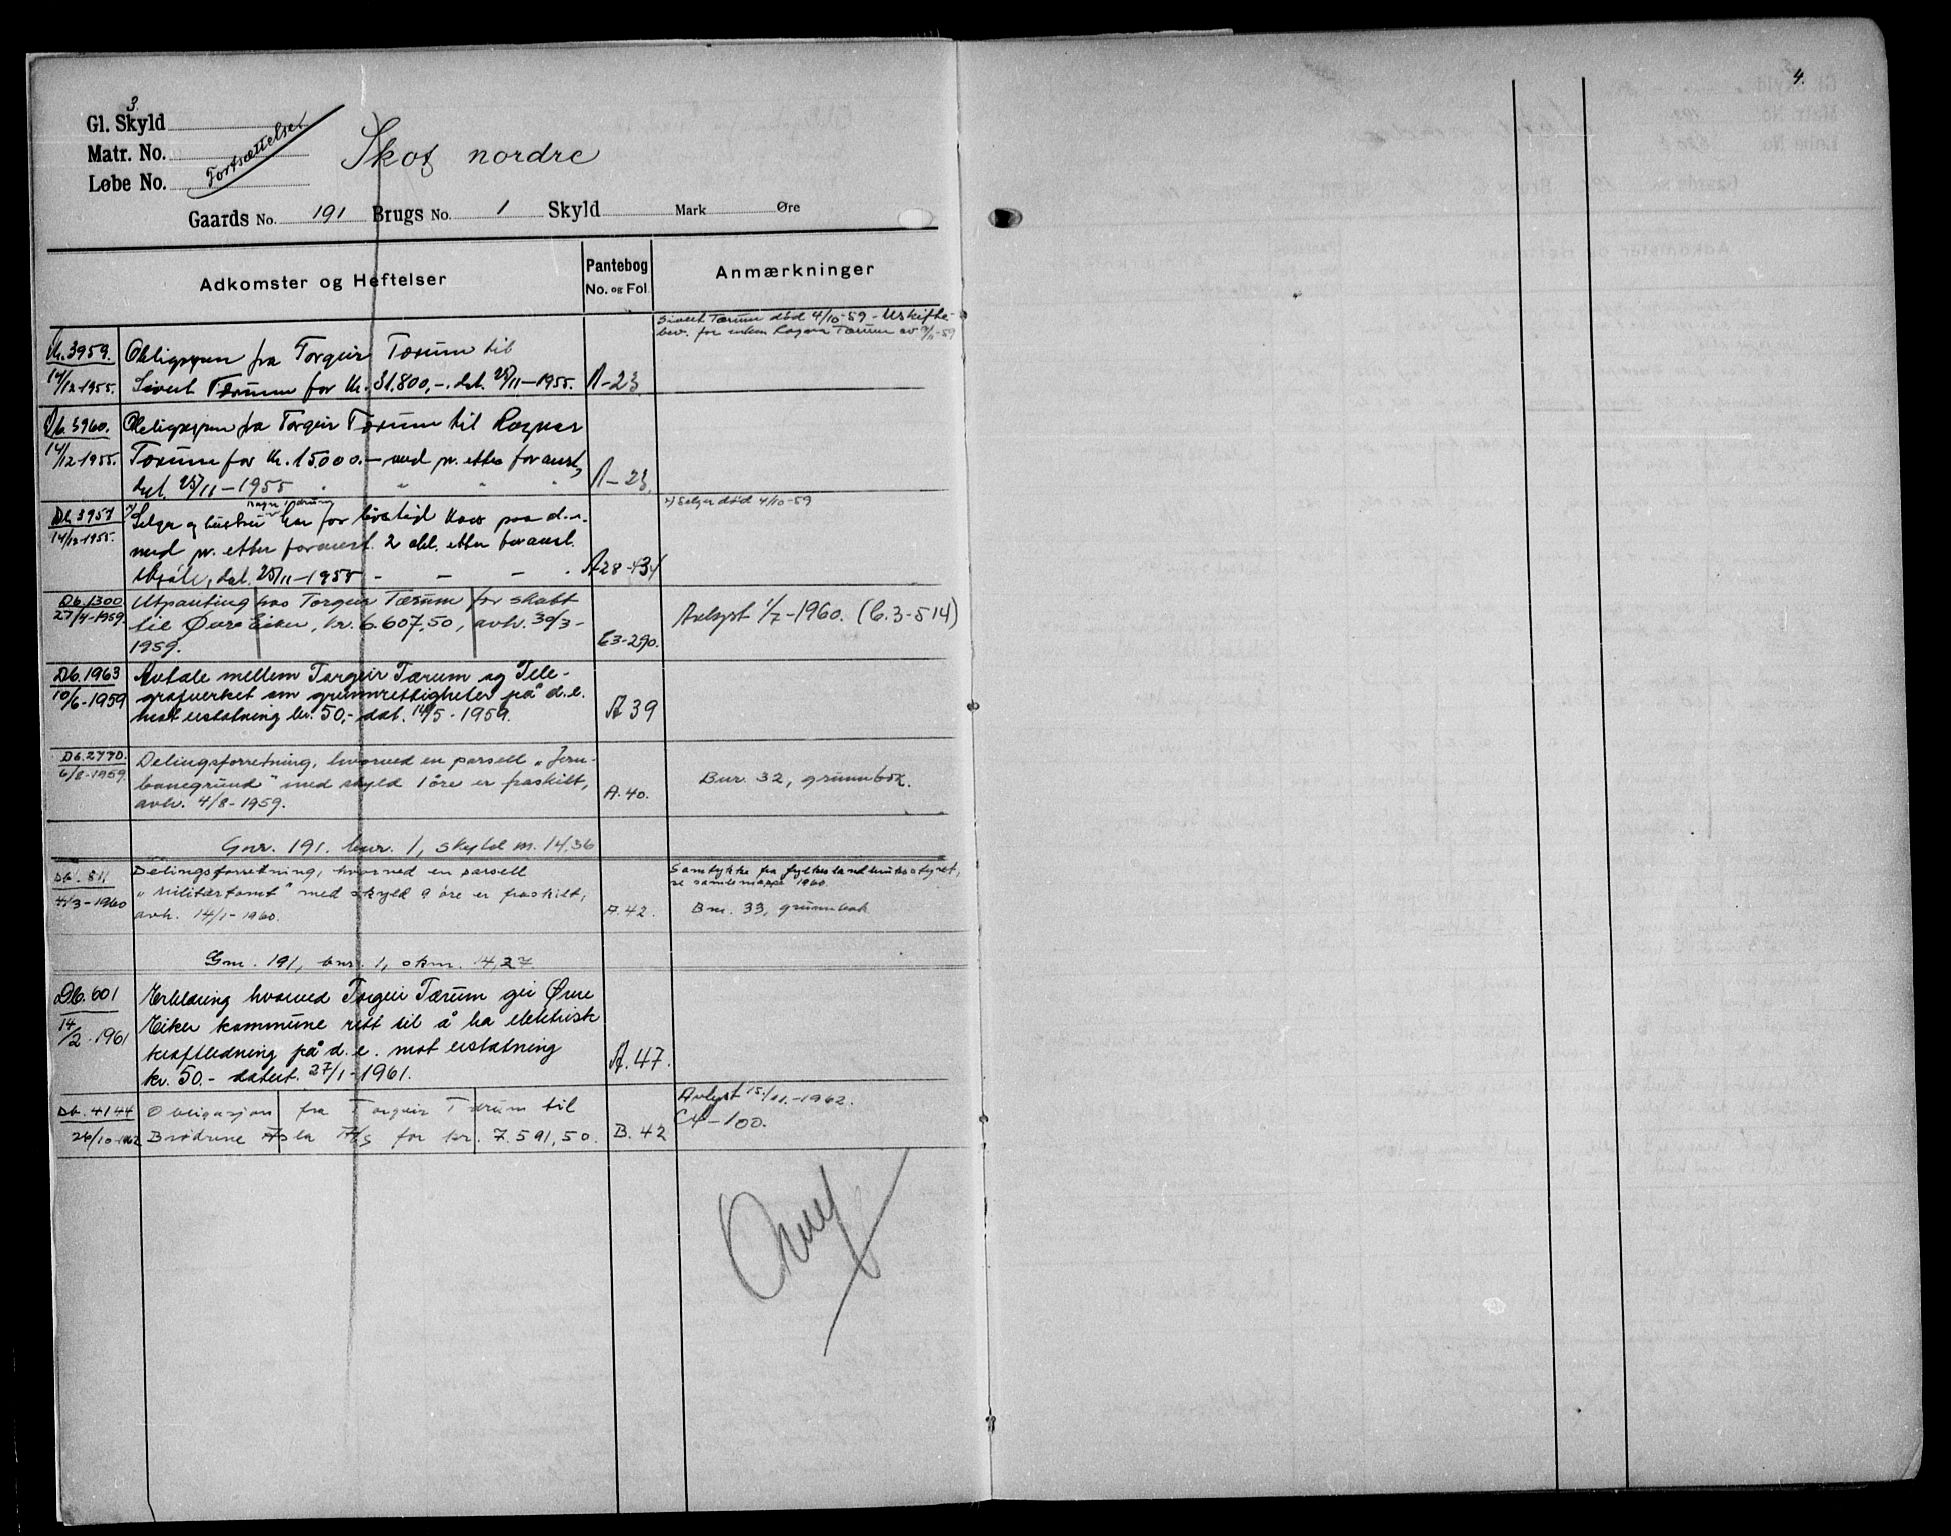 3.
4.
Gl. Skyld
Matr. No.
Løbe No.
Fortsættelse
Skot nordre
Gaards No. 191 Brugs No. 1 Skyld Mark Øre
Adkomster og Heftelser
Pantebog
No. og Fol.
Anmærkninger
Sivert Tærum død 4/10-59 - Uskifte-
bev. for enken Ragna Tærum av
3959.
14/12-1955.
Obligasjon fra Torgeir Tærum til
Sivert Tærum for kr. 31.800,-. dat. 25/11-1955.
A-23.
Db. 3960.
14/12-1955.
Obligasjon fra Torgeir Tærum til Ragna
Tærum for kr. 15.000.- med pr. etter foranst.,
dat. 25/11-1955
A-23.
Db. 3957
14/12-1955.
Selger og hustru Ragna Tærum har for livstid kår på d.e.
med pr. etter foranst. 2 obl. etter foranst.
skjøte, dat. 25/11-1955
A28-
x) Selger død 4/10-59
Db. 1300
27/4-1959
Utpanting hos Torgeir Tærum for skatt
til Øvre Eiker, kr. 6.607,50, avh. 30/3-
1959.
C3-290.
Avlyst 1/7-1960. (C.3-514)
Db. 1963
10/6-1959
Avtale mellem Torgeir Tærum og Tele-
grafverket om grunnrettigheter på d.e.
mot erstatning kr. 50,- dat. 14/5-1959.
A 39
Db. 2770.
6/8-1959.
Delingsforretning, hvorved en parsell „Jern-
banegrund" med skyld 1 øre er fraskilt,
avh. 4/8-1959.
A.40.
Bnr. 32, grunnbok.
Gnr. 191. bnr. 1, skyld m. 14,36
Db. 811
/3-1960
Delingsforretning, hvorved en parsell
„Militærtomt" med skyld 9 øre er fraskilt,
avh. 14/1-1960.
A.42.
Samtykke fra fylkeslandbruksstyret,
se samlemappe 1960.
Bnr. 33, grunnbok
Gnr. 191, bnr. 1, skm. 14,27.
Db. 601
14/2.1961
Erklæring hvorved Torgeir Tærum gir Øvre
Eiker kommune rett til å ha elektrisk
kraftledning på d.e. mot erstatning
kr. 50.- datert. 27/1-1961.
A.47.
Db. 4144
26/10-1962
Obligasjon fra Torgeir Tærum til
Brødrene Asla A/S for kr. 7.591,50.
B.42
Avlyst 15./11.-1962.
C4-100.